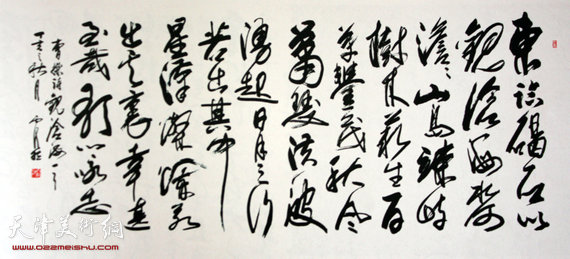 東臨碣石以
觀滄海水何
澹々山島竦峙
樹木叢生百
草豐茂秋風
蕭瑟洪波
湧起日月之行
若出其中
星漢燦爛若
出其裏幸甚
至哉歌以詠志
曹操詩觀滄海
秋月
天津美术网
www.022meishu.com